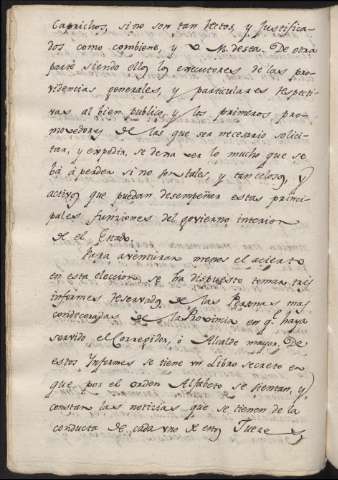 Caprichos, si no son tan rectos, y Justifica-
dos como combiene, y V. M. desea. De otra
parte siendo ellos los executores de las pro-
videncias generales, y particulares respecti-
vas al bien publico, y los primeros pro-
movedores de las que sea necesario solici-
tar, y expedir, se deja ver lo mucho que se
bá á perder si no son tales, y tan celosos, y
activos que puedan desempeñar estas princi-
pales funciones del govierno interior
de el Estado.
Para aventurar menos el acierto
en esta eleccion se ha dispuesto tomar tres
informes reservados de las Personas mas
condecoradas de la Provincia en q.e haya
servido el Corregidor, ó Alcalde mayor. De
estos Informes se tiene un Libro secreto en
que por el orden Alfabeto se sientan, y
constan las noticias que se tienen de la
conducta de cada uno de estos Jueces,